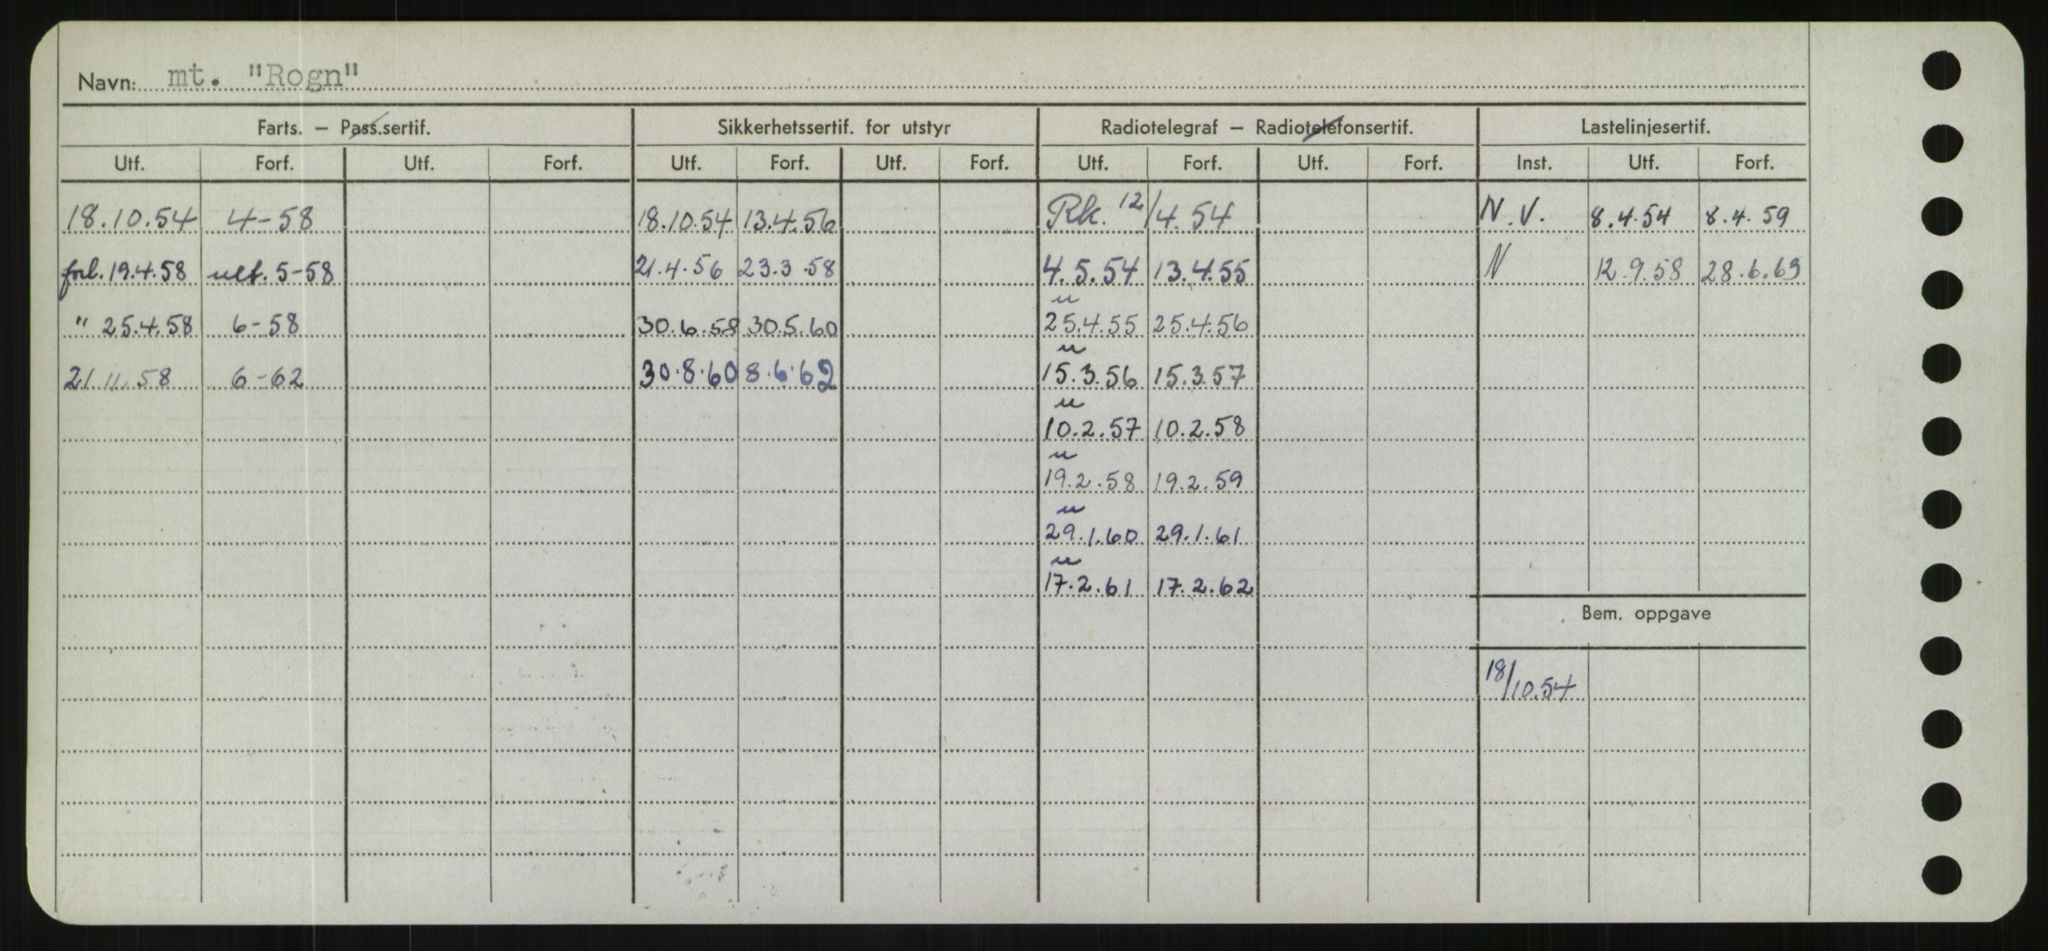 Navn: mt. "Rogn"
Farts. – Pass.sertif. Sikkerhetssertif. for utstyr Radiotelegraf – Radiotelefonsertif. Lastelinjesertif.
Utf. Forf. Utf. Forf. Utf. Forf. Utf. Forf. Utf. Forf. Utf. Forf. Inst. Utf. Forf.
18.10.54 4-58 18.10.54 13.4.56 Rk. 12/4.54 N.V. 8.4.54 8.4.59
forl. 19.4.58 utl. 5-58 21.4.56 23.3.58 4.5.54 13.4.55 N 12.9.58 28.6.63
u
" 25.4.58 6-58 30.6.58 30.5.60 25.4.55 25.4.56
u
21.11.58 6-62 30.8.60 8.6.62 15.3.56 15.3.57
u
10.2.57 10.2.58
u
19.2.58 19.2.59
u
29.1.60 29.1.61
u
17.2.61 17.2.62
Bem. oppgave
18/10.54